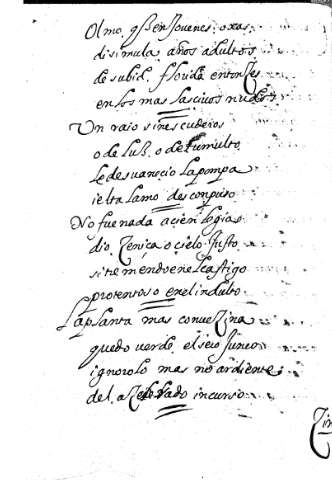 Olmo, q̃ en Jovenes ojas
disimula años adultos
de su vid, florida entonçes
en los mas lascivos nudos
Un raio sin escuderos
o de luz, o de tumulto
le desvaneció la pompa
i el talamo descompuso
No fue nada a çien legias
dio çeniça o cielo Justo
si tremendo en el castigo
portentoso en el indulto
La planta mas conveçina
quedo verde, el seco junco
ignoro lo mas no ardiente
del açelerado incurso